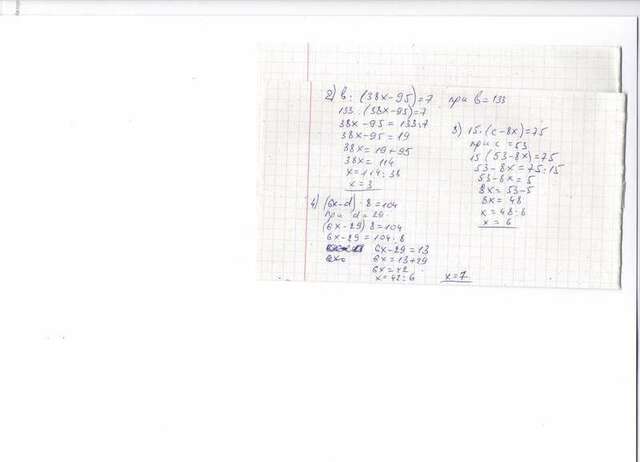 2) в: (38x-95)=7 при в=133
133:(38x-95)=7
38x-95=133:7
38x-95=19
38x=19+95
38x=114
x=114:38
x=3
3) 15·(c-8x)=75
при c=53
15(53-8x)=75
53-8x=75:15
53-8x=5
8x=53-5
8x=48
x=48:8
x=6
4) (6x-d)·8=104
при d=29
(6x-29)8=104
6x-29=104:8
6x-29=13
6x=13+29
6x=42
x=42:6
x=7